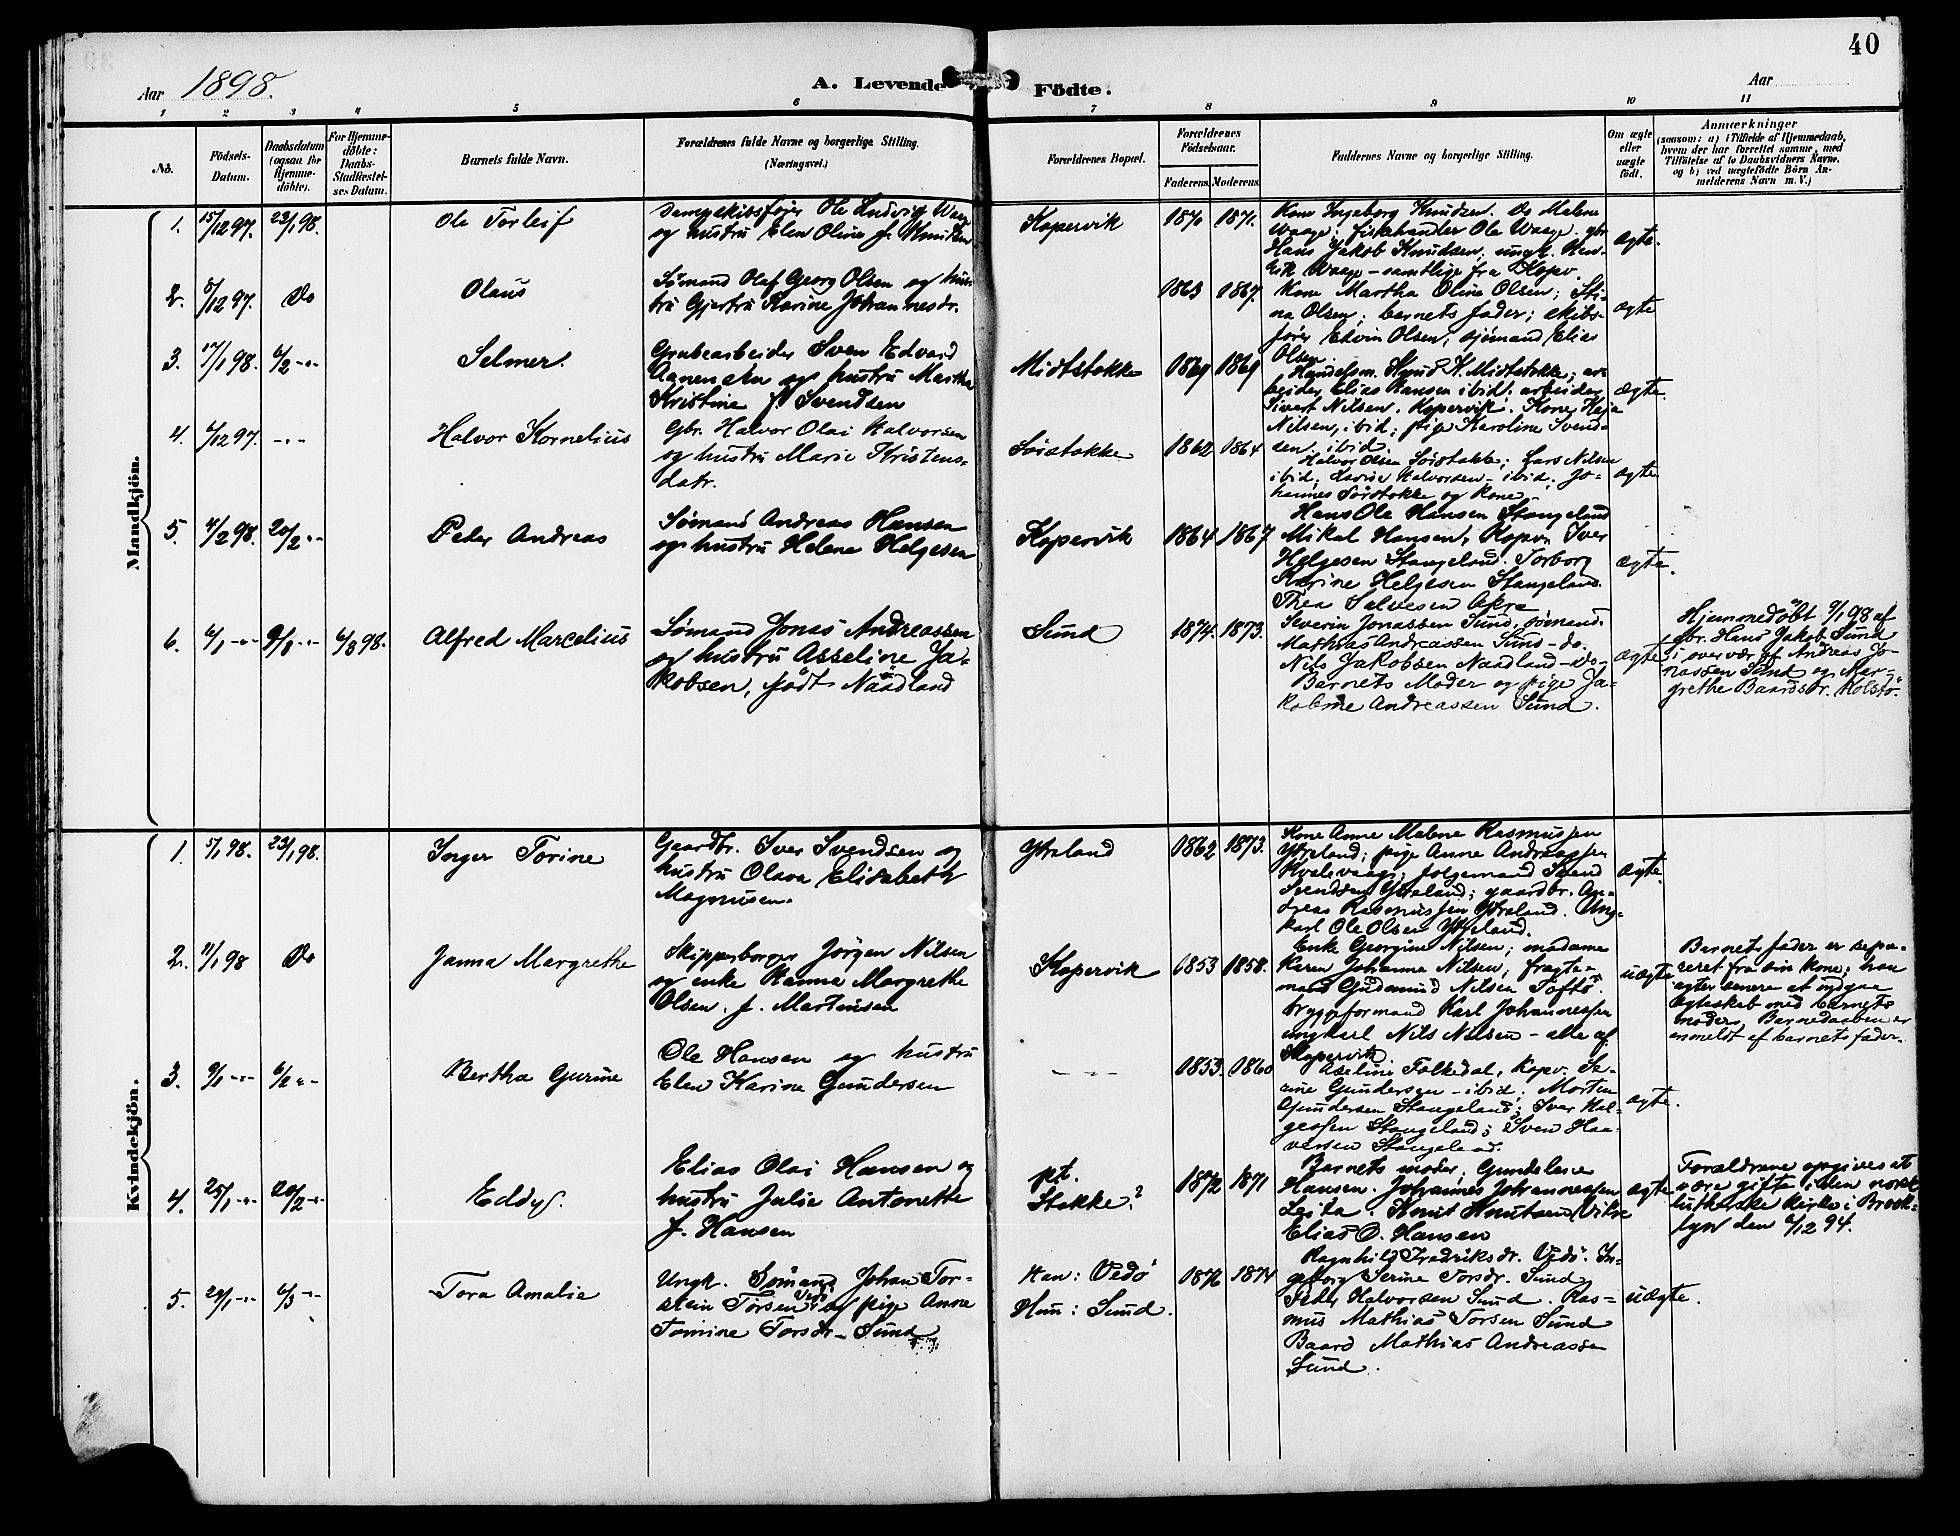 40
Aar 1898.
A. Levende Födte.
Aar
1 2 3 4 5 6 7 8 9 10 11
No.
Födsels-Datum.
Daabsdatum (ogsaa for Hjemme-döbte).
For Hjemme-döbte: Daabs-Stadfæstel-ses Datum.
Barnets fulde Navn.
Forældrenes fulde Navne og borgerlige Stilling. (Næringsvei.)
Forældrenes Bopæl.
Forældrenes Födselsaar.
Faderens. Moderens.
Faddernes Navne og borgerlige Stilling.
Om ægte eller uægte födt.
Anmærkninger
(saasom: a) i Tilfælde af Hjemmedaab,
hvem der har forrettet samme, med
Tilföielse af to Daabsvidners Navne,
og b) ved uægtefödte Börn An-
melderens Navn m. V.)
Mandkjön.
1. 15/12 97. 23/1 98.
Ole Torleif
Dampskibsfører Ole Ludvig Waage
og hustru Elen Oline f. Knudsen
Kopervik
1870 1871.
Kone Ingeborg Knudsen. Do Malene
Waage; fiskehandler Ole Waage. gbr.
Hans Jakob Knudsen; ungk. Hen-
rik Waage - samtlige fra Kopv.
ægte.
2. 8/12 97. Do
Olaus
Sømand Olaf Georg Olsen og hus-
tru Gjertru Karine Johannesdr.
1863 1867.
Kone Martha Oline Olsen; Sti-
na Olsen; barnets fader; skibs-
fører Edvin Olsen; sjømand Elias
Olsen.
ægte
3. 17/1 98. 6/2 -"-
Selmer.
Grubearbeider Sven Edvard
og hustru Martha
Kristine f. Svendsen
Midtstokke
1869 1869
Handelsm. Knud K. Midtstokke; ar-
beider Elias Hansen ibid; arbeider
Sivert Nilsen, Kopervik. Kone Kaja
Nilsen, ibid; pige Karoline Svend-
sen ibid.
ægte.
4. 4/12 97. -"-
Halvor Kornelius
Gbr. Halvor Olai Halvorsen
og hustru Marie Kristens-
datr.
Søistokke
1862 1864
Halvor Olsen Søistokke; Lars Nilsen
ibid; Halvorsen - ibid. Jo-
hannes Søistokke og kone -
ægte
5. 4/2 98. 20/2 -"-
Peder Andreas
Sømand Andreas Hansen
og hustru Helene Helgesen
Kopervik
1864 1867
Hans Ole Hansen Stangeland
Mikal Hansen, Kopv. Iver
Helgesen Stangeland. Torborg
Karine Helgesen Stangeland.
Thea Salvesen Akre
ægte.
6. 6/1 -"- 9/1 -"- 6/3 98.
Alfred Marcelius
Sømand Jonas Andreassen
og hustru Asseline Ja-
kobsen, født Naadland
Sund
1874. 1873.
Severin Jonassen Sund, sømand.
Mathias Andreassen Sund - do.
Nils Jakobsen Naadland - do -
Barnets Moder og pige Ja-
kobine Andreassen Sund.
ægte
Hjemmedøbt 9/1 98 af
gbr. Hans Jakob Sund
i overvær af Andreas Jo-
nassen Sund og Mar-
grethe Baardsdr. Kolstø.
Kvindekjön.
1. 5/1 98. 23/1 98.
Inger Torine
Gaardbr. Iver Svendsen og
hustru Olava Elisabeth
Magnusen.
Ytreland
1862 1873.
Kone Anne Malene Rasmussen
Ytreland; pige Anne Andreassen
Kvalevaag; følgemand Svend
Svendsen Ytreland; gaardbr. An-
dreas Rasmussen Ytreland. Ung-
karl Ole Olsen Ytreland.
ægte.
2. 11/1 98 Do
Janna Margrethe
Skipperborger Jørgen Nilsen
og enke Hanna Margrethe
Olsen, f. Martinsen
Kopervik
1853 1858.
Enke Georgine Nilsen; madame
Karen Johanne Nilsen; fragte-
mand Gudmund Nilsen Toftø.
bryggeformand Karl Johannessen
ungkarl Nils Nilsen - alle af
Kopervik.
uægte
Barnets fader er sepa-
reret fra sin kone; han
agter senere at indgaa
ægteskab med barnets
moder. Barnedaaben er
anmeldt af barnets fader.
3. 9/1 -"- 6/2 -"-
Bertha Gurine
Ole Hansen og hustru
Elen Karine Gundersen
-"-
1853. 1860
Aseline Falkedal, Kopv. Se-
rine Gundersen - ibid; Morten
Gundersen Stangeland; Iver Hel-
gesen Stangeland; Sven Haa-
versen Stangeland.
ægte.
4. 25/1 -"- 20/2 -"-
Eddy.
Elias Olai Hansen og
hustru Julie Antonette
f. Hansen
pt.
Stokke?
1872 1871
Barnets moder. Gundelene
Hansen. Johannes Johannessen
Leita. Knut Knutsen Vikre
Elias O. Hansen
ægte
Forældrene opgives at
være gifte i den norsk
lutherske kirke i Brook-
lyn den 6/12 94.
5. 29/1 -"- 6/3 -"-
Tora Amalie
Ungk. Sømand Johan Tor-
stein Torsen Vedø og pige Anne
Tomine Torsdr. Sund
Han: Vedø
Hun: Sund.
1876 1874
Ragnhild Fredriksdr. Vedø. In-
geborg Serine Torsdr. Sund
Peder Halvorsen Sund. Ras-
mus Mathias Torsen Sund
Baard Mathias Andreassen
Sund.
uægte.